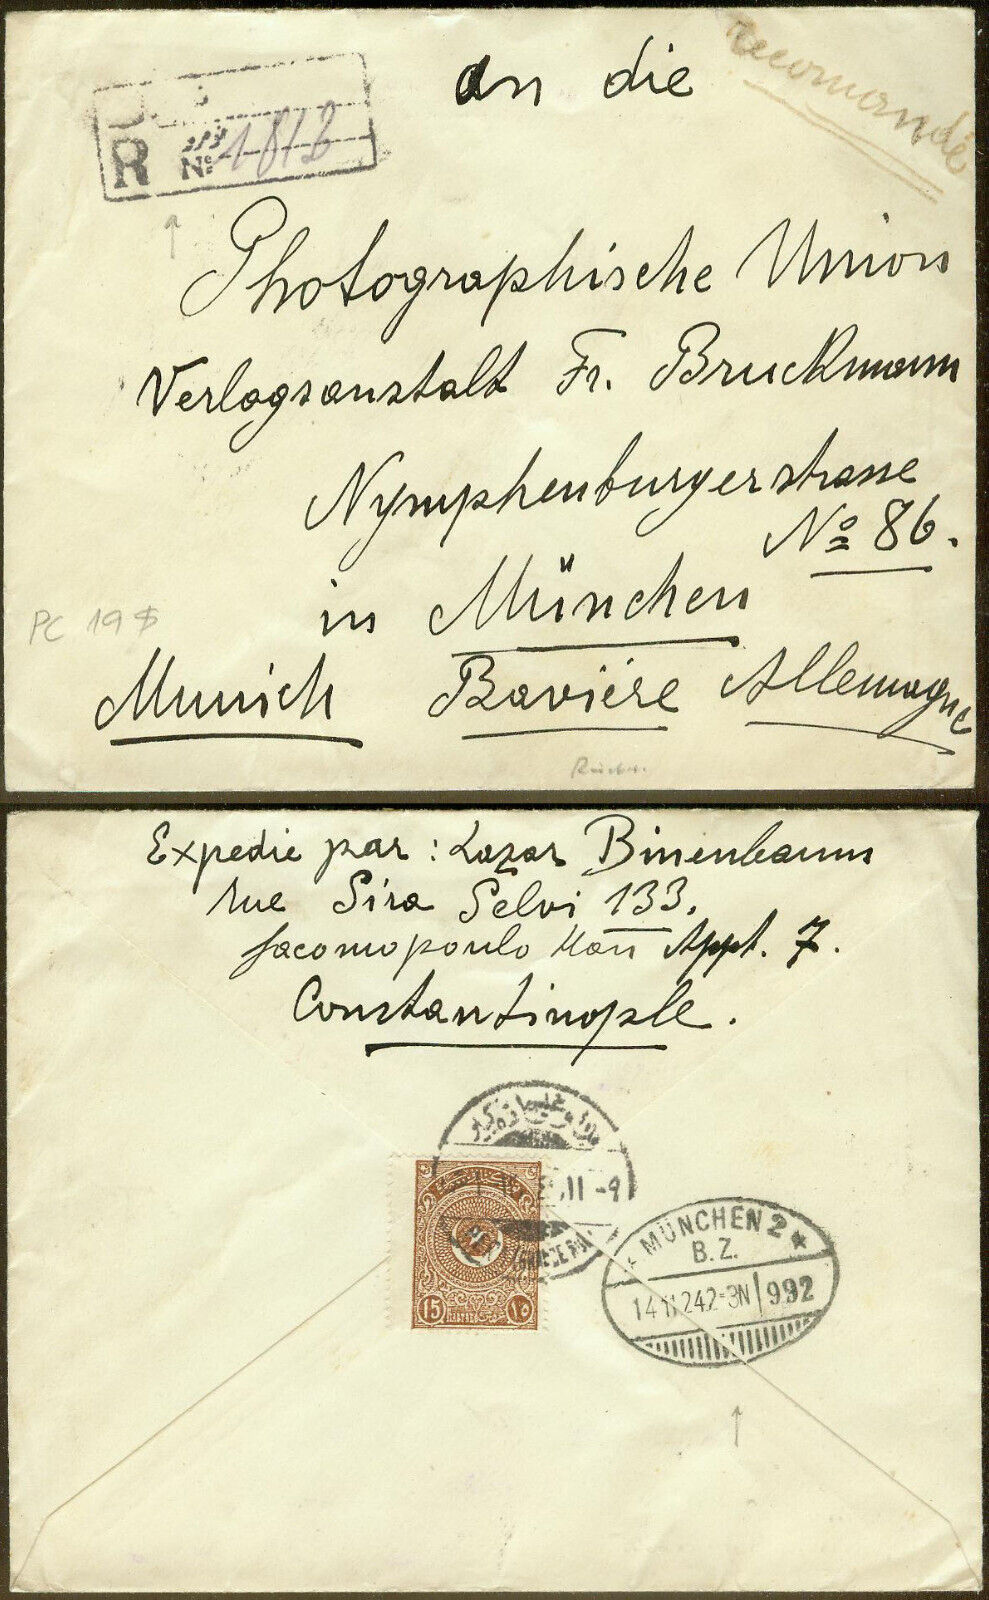 recomandée
R نومرو
Nº 1812
An die
Photographische Union
Verlagsanstalt Fr. Bruckmann
Nymphenburgerstrasse
Nº 86.
in München
PC 19 $
Munich Bavière Allemagne
Expedie par : Lazar Binenbaum
rue Sira Selvi 133.
Jacomopoulo Han Appt. 7.
Constantinople.
11-9
15 ١٥
MÜNCHEN 2 ★
B.Z.
14 11 24 2-3N 992